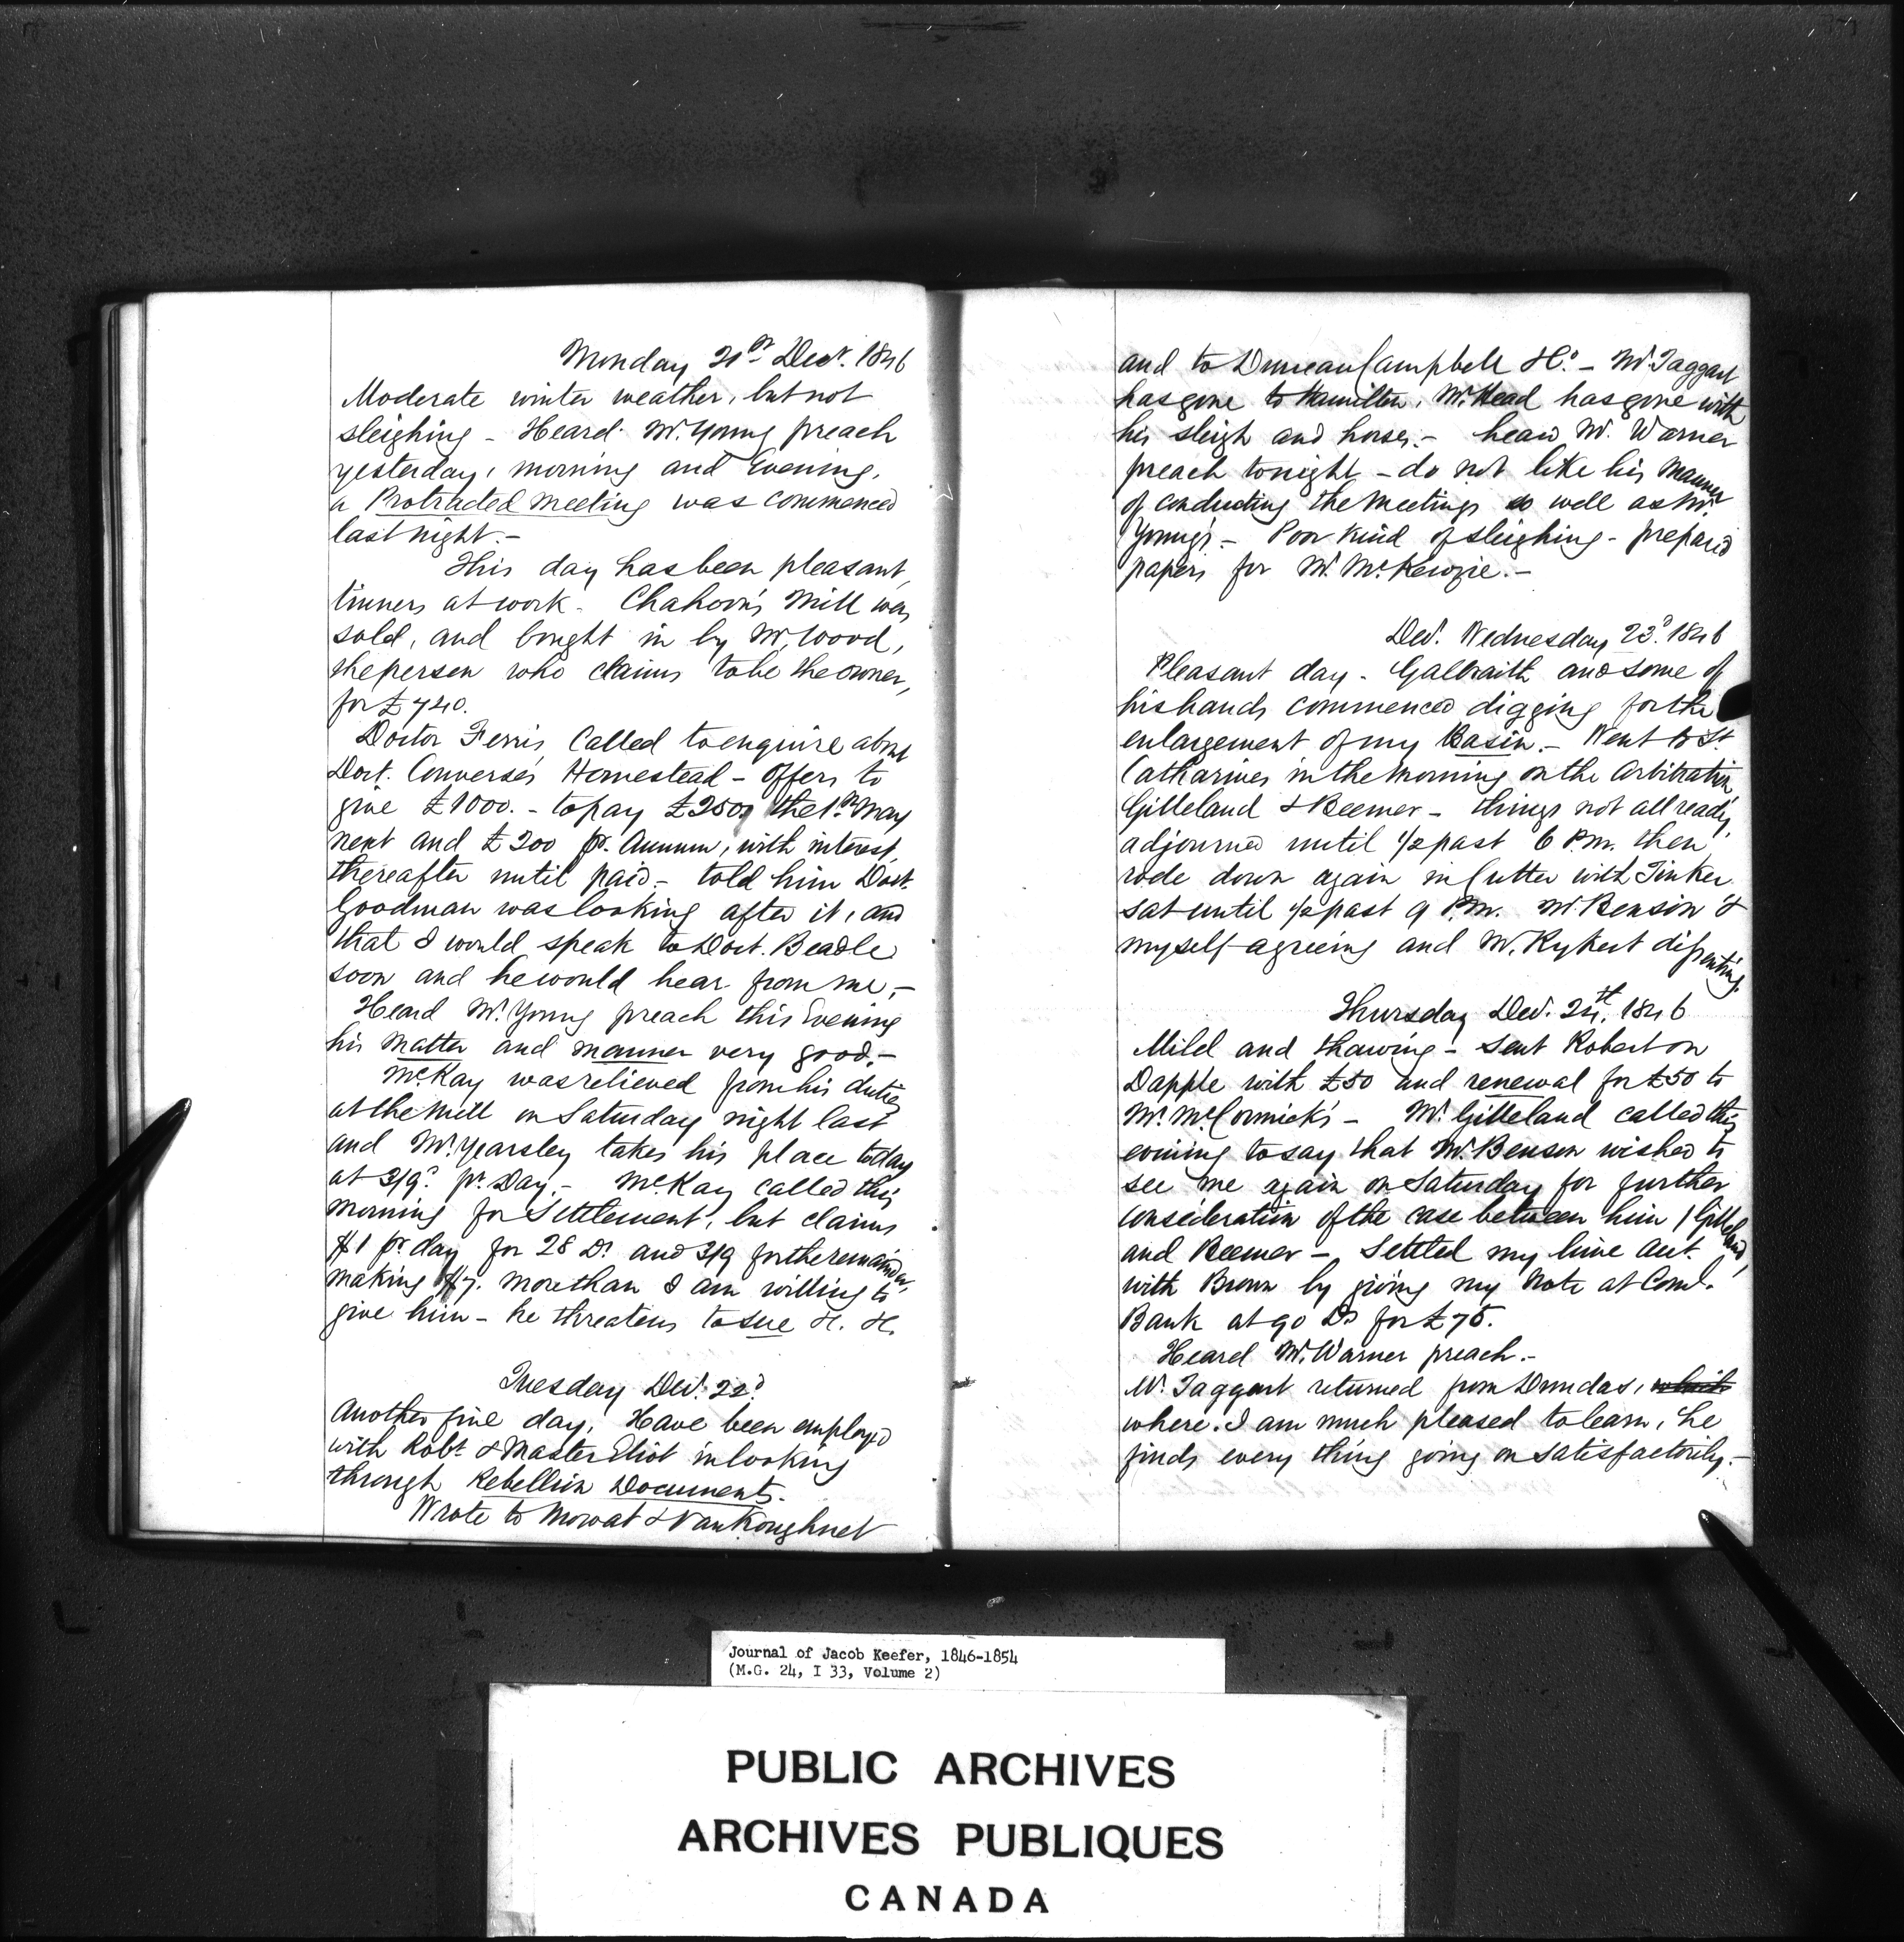 Monday 21st Decr. 1846
Moderate winter weather, but not
sleighing - Heard Mr. Young preach
yesterday, morning and Evening,
a Protracted meeting was commenced
last night.-
This day has been pleasant,
tinners at work. Chahoon's Mill was
sold, and bought in by Mr. Wood,
the person who claims to be the owner,
for £740.
Doctor Ferris Called to enquire about
Doct. Converse's Homestead - Offers to
give £1000. - to pay £250, the 1st May
next and £200 pr. Annum, with interest,
thereafter until paid - told him Doct.
Goodman was looking after it, and
that I would speak to Doct. Beadle
soon and he would hear from me,-
Heard Mr. Young preach this Evening
his matter and manner very good.-
McKay was relieved from his duties
at the Mill on Saturday night last
and Mr. Yearsley takes his place today
at 3/9. pr. Day.- McKay called this
morning for Settlement, but claims
$1 pr. day for 28 Ds. and 3/9 for the remainder,
making $7. more than I am willing to
give him - he threatens to sue H. H.
Tuesday Decr. 22d
Another fine day, Have been employed
with Robt. & Master Eliot in looking
through Rebellion Documents.
Wrote to Mowat & VanKoughnet
and to Duncan Campbell H. - Mr. Taggart
has gone to Hamilton, Mr. Head has gone with
his sleigh and horses.- heard Mr. Warner
preach tonight - do not like his manner
of conducting the meetings so well as Mr.
Young's.- Poor kind of sleighing - prepared
papers for Mr. McKenzie.-
Decr. Wednesday 23d. 1846
Pleasant day - Galbraith and some of
his hands commenced digging for the
enlargement of my Basin.- Went to St.
Catharines in the morning on the Arbitration,
Gilleland & Beemer - things not all ready,
adjourned until 1/2 past 6 P.M. then
rode down again in Cutter with Tinker
sat until 1/2 past 9 P.M. Mr. Benson &
myself agreeing and Mr. Rykert dissenting.
Thursday Decr. 24th. 1846
Mild and thawing - sent Robert on
Dapple with £50 and renewal for £50 to
Mr. McCormick's - Mr. Gilleland called this
evening to say that Mr. Benson wished to
see me again on Saturday for further
consideration of the case between him (Gilleland)
and Beemer - Settled my lime Acct.
with Brown by giving my Note at Coml.
Bank at 90 Ds for £75.
Heard Mr. Warner preach.-
Mr. Taggart returned from Dundas,
where, I am much pleased to learn, he
finds every thing going on satisfactorily.-
Journal of Jacob Keefer, 1846-1854
(M.G. 24, I 33, Volume 2)
PUBLIC ARCHIVES
ARCHIVES PUBLIQUES
CANADA